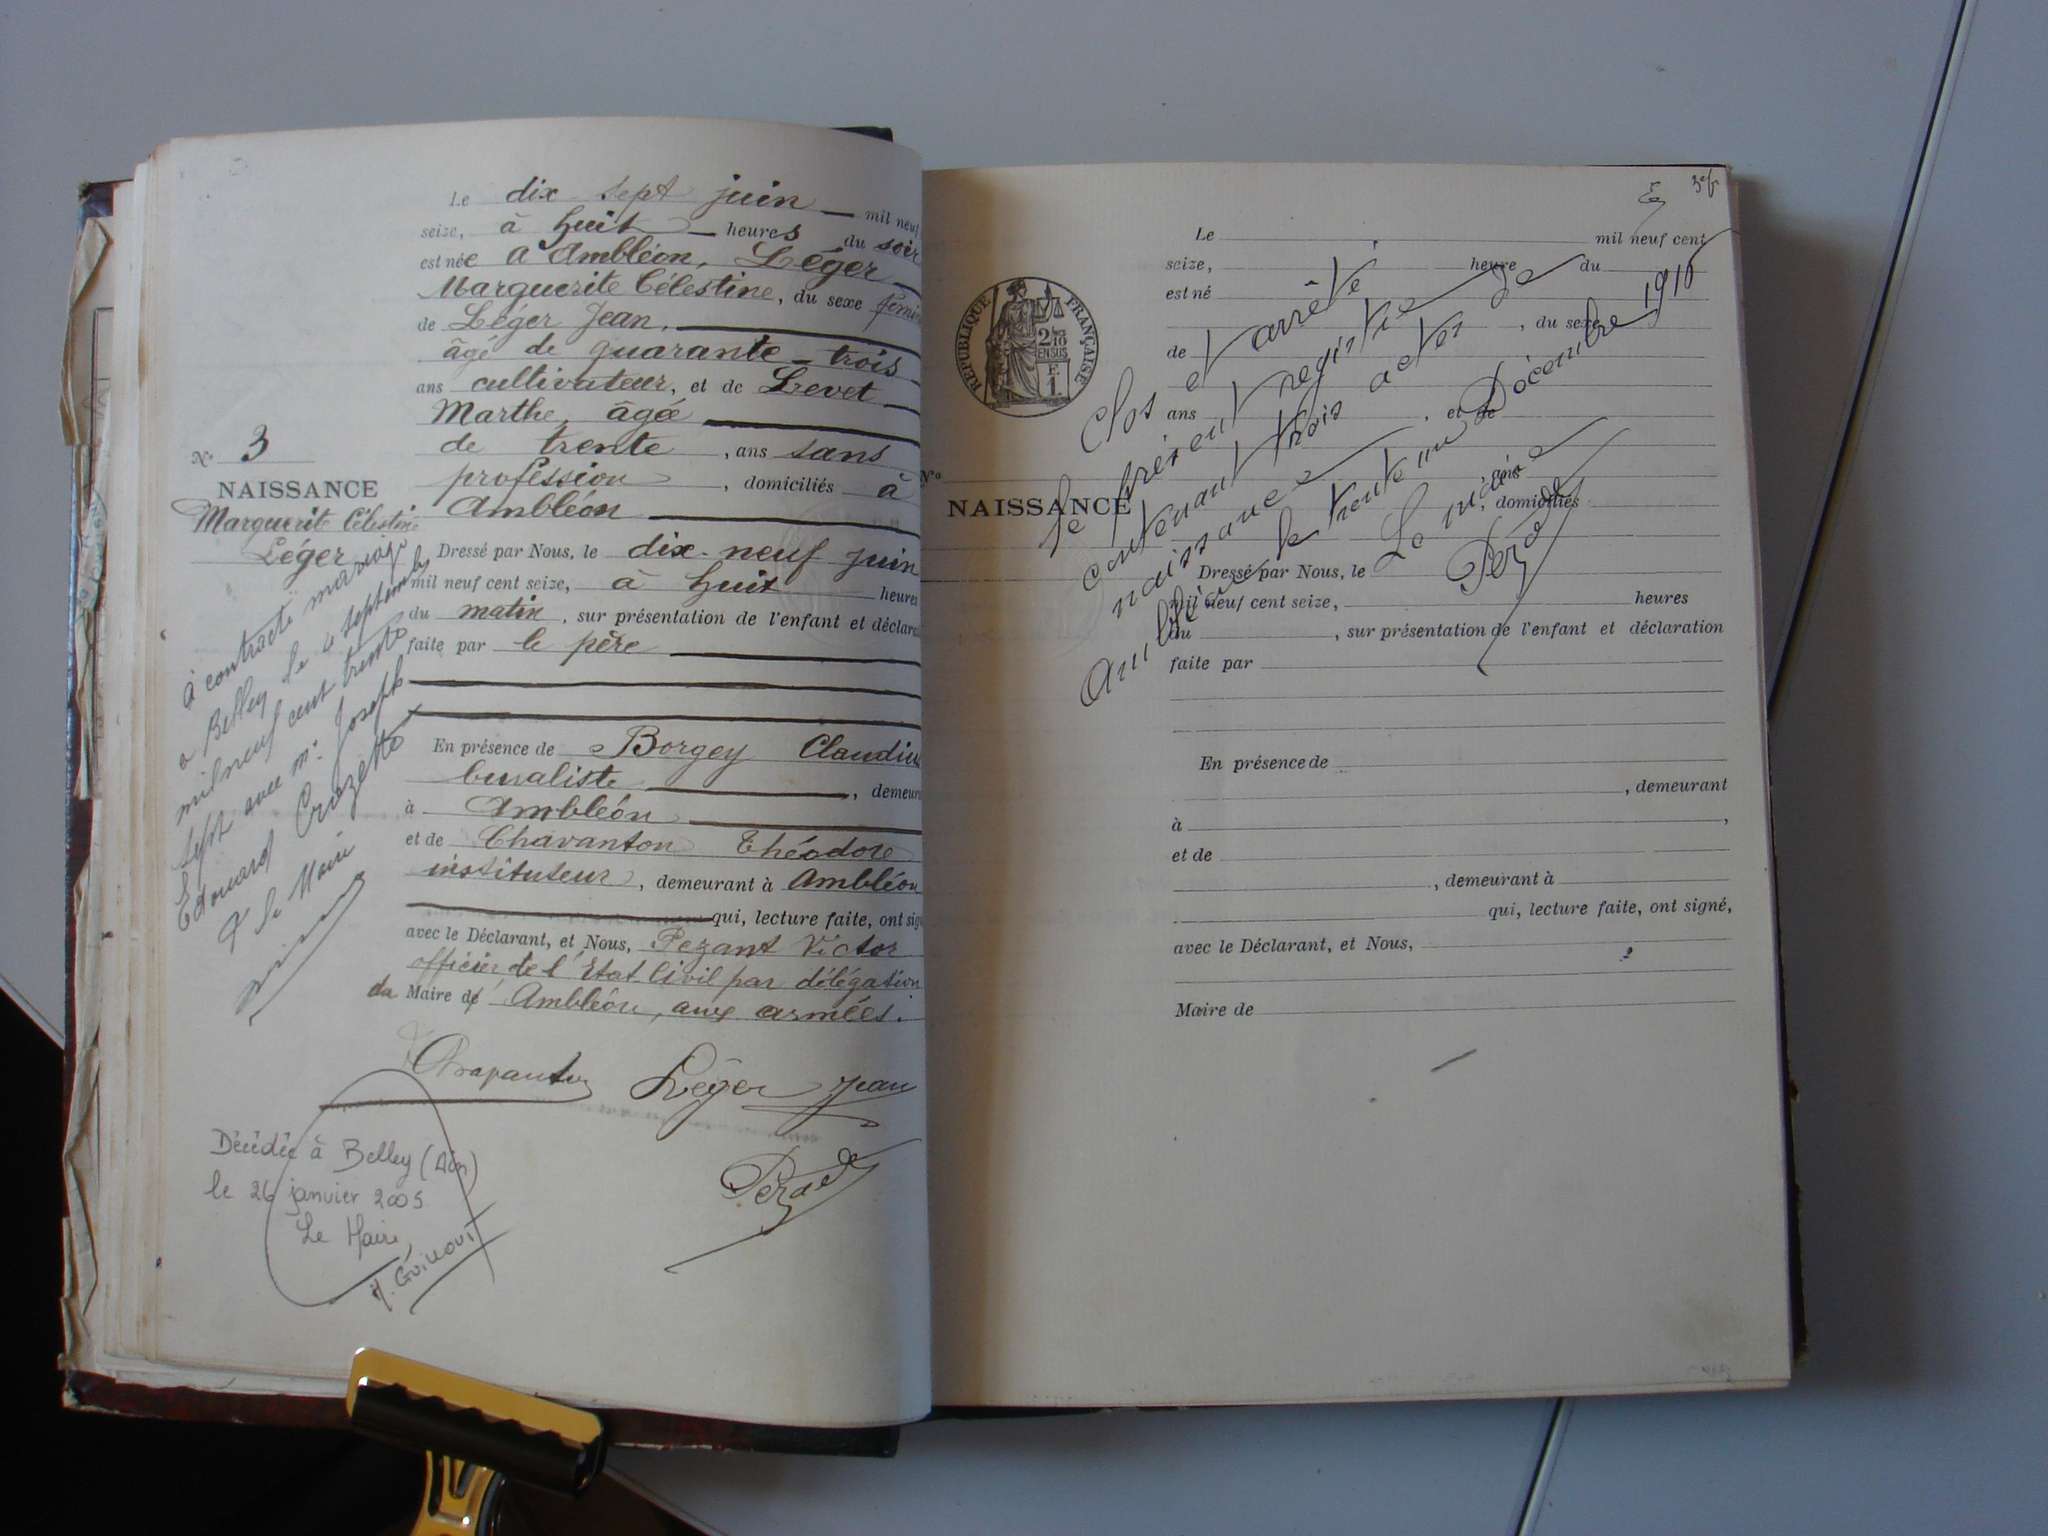 Le dix sept juin mil neuf
seize, à huit heures du soir
est née à Ambléon, Léger
Marguerite Célestine, du sexe fémin
de Léger Jean,
âgé de quarante-trois
ans cultivateur, et de Levet
Marthe, âgée
de trente, ans sans
profession, domiciliés à
Ambléon
N° 3
NAISSANCE
Marguerite Célestine
Léger
Dressé par Nous, le dix-neuf juin
mil neuf cent seize, à huit heures
du matin, sur présentation de l'enfant et déclara
faite par le père
À contracté mariage
a Belley le 4 septembre
mil neuf cent trente
sept avec Mr Joseph
Edouard Cruzetto
Le Maire
En présence de Borgey Claudius
buraliste, demeur
à Ambléon
et de Chavanton Théodore
instituteur, demeurant à Ambléon
qui, lecture faite, ont sign
avec le Déclarant, et Nous, Pezant Victor
officier de l'État Civil par délégation
du Maire de Ambléon, aux armées.
Chavanton Léger Jean
Décédée à Belley (Ain)
le 26 janvier 2005
Le Maire
3e f
RÉPUBLIQUE FRANÇAISE
2/10
EN SUS
F.
1.
Le mil neuf cent
seize, heure du
est né
, du sexe
de
ans , et de
ans
N°
NAISSANCE
, domiciliés
Dressé par Nous, le
mil neuf cent seize, heures
du , sur présentation de l'enfant et déclaration
faite par
Clos et arrêté
le présent registre de
contenant trois actes de
naissance
Ambléon le trente un Décembre 1916
Le maire
En présence de
, demeurant
à ,
et de
, demeurant à
qui, lecture faite, ont signé,
avec le Déclarant, et Nous,
Maire de